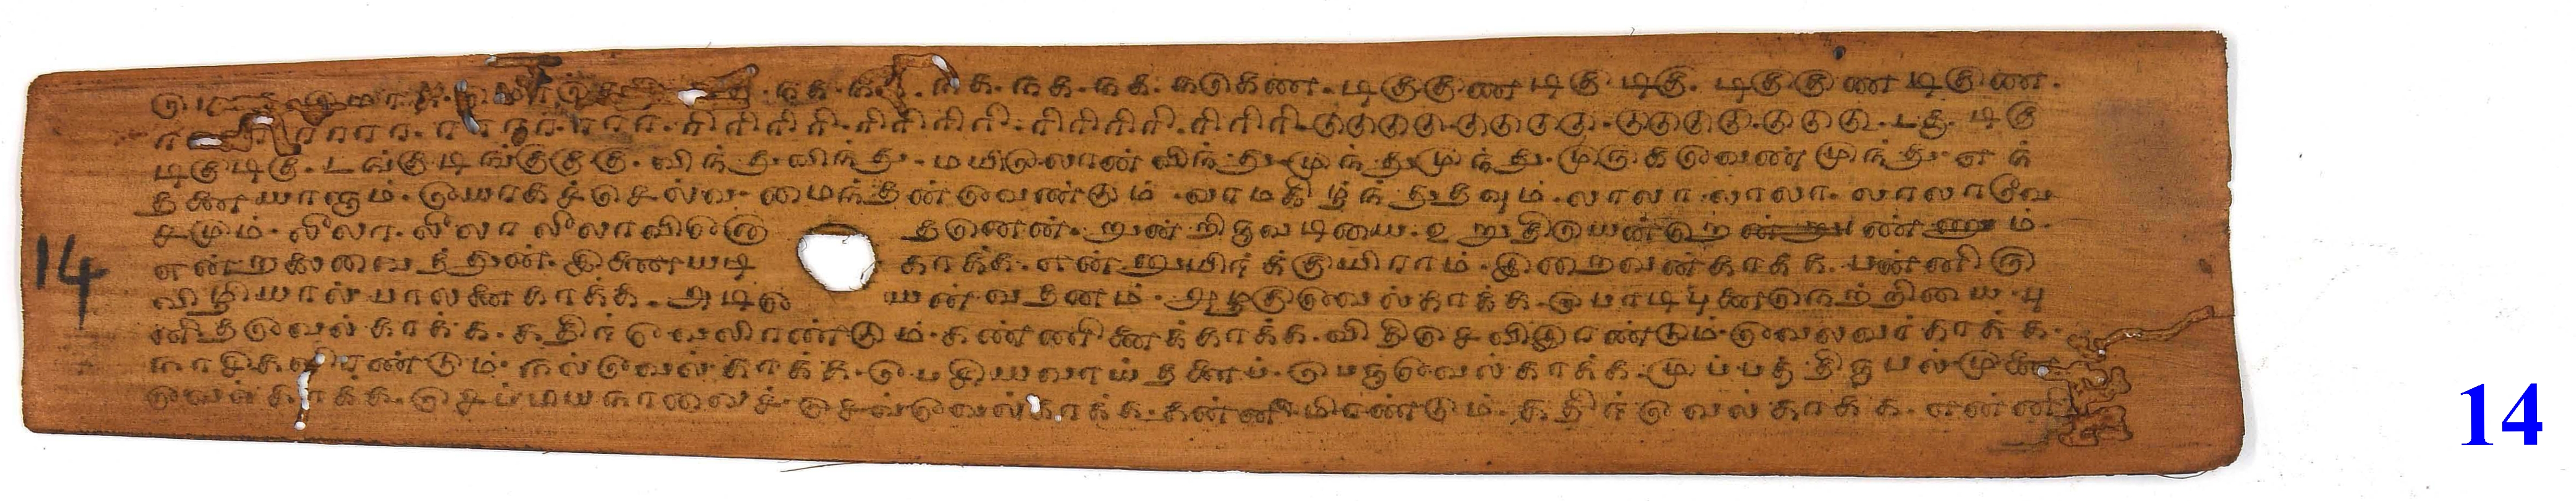 நக. நக. நக. நகெகண. டிகுகுண டிகு டிகு. டிகுகுண டிகுண.
ரரரர. ரரரர. ரரர. ரிரிரிரி. ரிரிரிரி. ரிரிரிரி. ரிரிரி. டுடுடுடு. டுடுடுடு. டுடுடுடு. டுடுடு. டிகு
டிகுடிகு. டங்கு டிங்குகுகு. விந்து விந்து. மயிலொன் விந்து. முந்து முந்து. முருகவெண் முந்து. என்
தனையாளும். எயரகச்செல்வ. மைந்தன் வெண்டும். வரமகிழ்ந்துதவும். லாலா. லாலா. லாலாவெ
சமும். லீலா. லீலா லீலாவிநொ தனென். றுன் றிருவடியை. உறுதியென் ண்ணும்.
என்றலைவைத்துன். இணையடி காக்க. என்னுயிர்க்குயிராம். இறைவன்காக்க. பன்னிரு
விழியால் பாலனை காக்க. அடியெ யன் வதனம். அழகுவெல்காக்க. பொடிபுனைநெற்றியை. பு
னிதவெல் காக்க. கதிர்வெலிரண்டும். கண்ணினைக்காக்க. விதிசெவியிரண்டும். வெலவர்காக்க.
நாசிகளிரண்டும். நல்வெல்காக்க. பெசியவாய்தனைப். பெருவெல்காக்க. முப்பத்திருபல்முனை
வெல்காக்க. செப்பியநாவைச். செவ்வெல்காக்க. கன்னமிரண்டும். கதிர்வெல்காக்க. என்னி
14
14